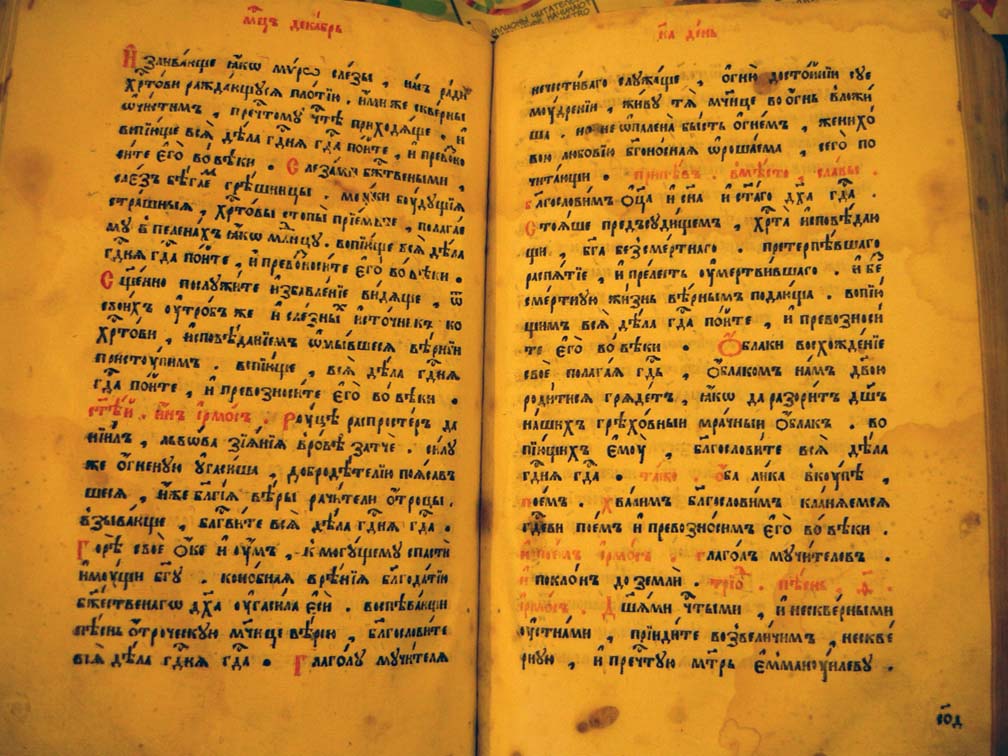 мцъ декабрь
Изливающе ꙗкѡ мѵро слезы, насъ ради
Хрⷭ҇тови раждающуся плотїю. ими же скверны
ѡчистим, пречⷭ҇тому чⷭ҇тѣ приходяще, и
вопїюще всѧ дѣла гдⷭ҇нѧ гдⷭ҇а пойте, и превозно
сите Его во вѣки. Слезами бжⷭ҇твеными,
страшныѧ, Хрⷭ҇товы стопы прїемьше, полагае
му в пеленахъ ꙗкѡ млⷣнцу. вопїюще всѧ дѣла
гдⷭ҇нѧ гдⷭ҇а пойте, и превозносите Его во вѣки.
Сщ҃енно послужите избавленїе видѧще, ѿ
своихъ оутробъ же и слезныѧ источникъ ко
Хрⷭ҇тови, исповѣданїемъ ѡмывшесѧ вѣрнїи
пристоупим. вопїюще, всѧ дѣла гдⷭ҇нѧ
гдⷭ҇а пойте, и превозносите Его во вѣки.
ст҃ѣй. инъ ірмосъ. Роуцѣ распростеръ да
нїилъ, львѡва зїѧнїѧ в ровѣ затче. силу
же огненую угасиша, добродѣтелїю поѧсав
шесѧ, иже благїѧ вѣры рачители отроцы.
взывающе, благⷭ҇вите всѧ дѣла гдⷭ҇нѧ гдⷭ҇а.
Горѣ свое око и оумъ, к могущему спасти
имоущи бг҃у. конобнаѧ врѣнїѧ благодатїю
бжⷭ҇твенагѡ дх҃а оугасила Еси. воспѣвающи
пѣснь отроческую мч҃нице вѣрою, благословите
всѧ дѣла гдⷭ҇нѧ гдⷭ҇а. Глаголу мучителѧ
ка день
нечестиваго служаще, огню достойнїи суе
моудренїи, живу тѧ мч҃нице во огнь вложи
ша. но не ѡпалена бысть огнемъ, женихо
вою любовїю бг҃оноснаѧ ѡрошаема, сего по
читающи. припѣвъ. вмѣсто, славы.
благословимъ оц҃а и сн҃а и ст҃аго дх҃а гдⷭ҇а.
Стоѧше предъ судищемъ, Хрⷭ҇та исповѣдаю
щи, бг҃а безсмертнаго. претерпѣвшаго
распѧтїе, и прелесть оумертвившаго. и бе
смертную жизнь вѣрнымъ подающа. вопїю
щимъ всѧ дѣла гдⷭ҇а пойте, и превозноси
те Его во вѣки. Облаки восхожденїе
свое полагаѧ гдⷭ҇ь, облакомъ намъ двою
родитисѧ грѧдетъ, ꙗкѡ да разоритъ дш҃ъ
нашихъ грѣховный мрачный облакъ. во
пїющихъ Емоу, благословите всѧ дѣла
гдⷭ҇нѧ гдⷭ҇а. таже. оба лика вкоупѣ,
поемъ. Хвалимъ благословимъ кланѧемсѧ
гдⷭ҇еви поемъ и превозносимъ Его во вѣки.
и поемъ ірмосъ. глаголъ мучителевъ.
и поклонъ до земли. трїоⷣ. пѣснь, ѳ҃.
ірмосъ. Дш҃ами чⷭ҇тыми, и нескверными
оустнами, прїидите возвеличимъ, нескве
рную, и пречⷭ҇тую мт҃рь Еммануилеву.
сод